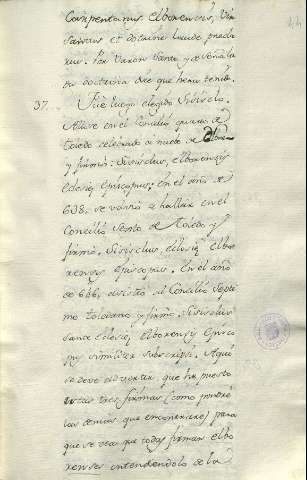 Carpentanus elborensis, Vir
Sanctus et doctrina laude
Por Varon Santo y de
doctrina que tenido.
37. Fue luego elegido Sisisclo.
Allose en el Concilio quarto de
toledo celebrado a nuebe de
y firmó: Sisisclus, elborensis
eclesię Episcopus: En el año de
638. se volvió a hallar en el
Concilio Sexto de Toledo y
firmó. Sisisclus, eclesię elbo-
rensis Episcopus. En el año
de 646. asistio al Concilio Septi-
mo toledano y firmó. Sisisclus
sanctę Eclesię Elborensis Episco-
pus similiter subscripsi. Aqui
se deve advertir, que he puesto
estas tres firmas (como pondré
las demas que encontrare) para
que se vea que todas firman elbo-
renses intendendolo de la